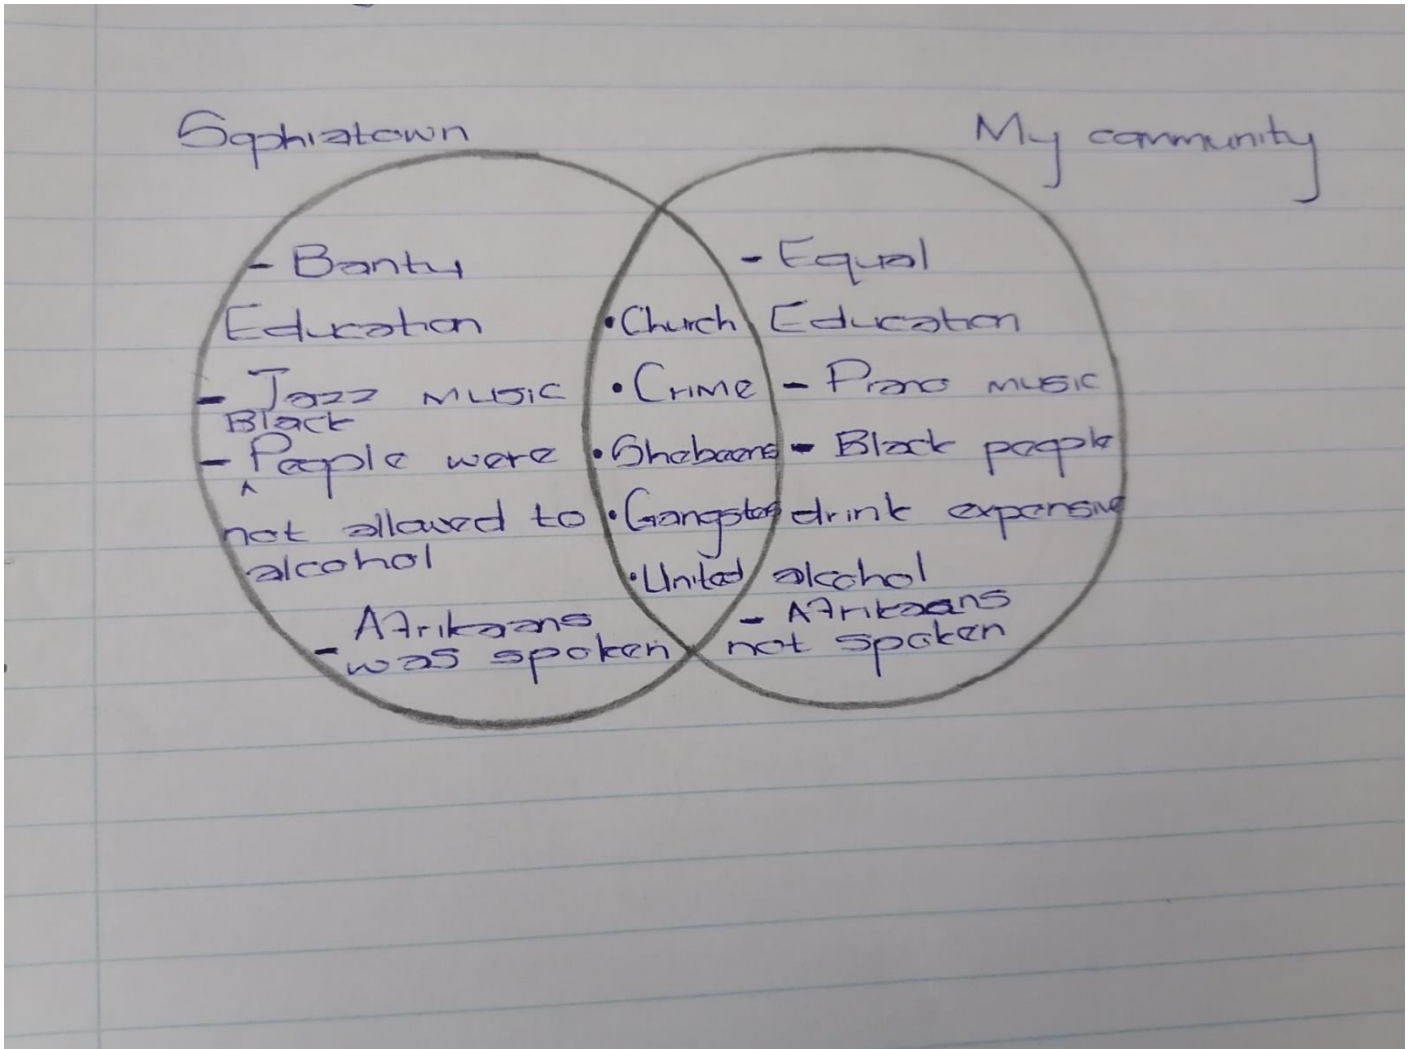 Sophiatown
My community
- Bantu
Education
- Jazz music
Black
- People were
not allowed to
alcohol
- Afrikaans
was spoken
• Church
• Crime
• Shebeens
• Gangsters
• United
- Equal
Education
- Piano music
- Black people
drink expensive
alcohol
- Afrikaans
not spoken